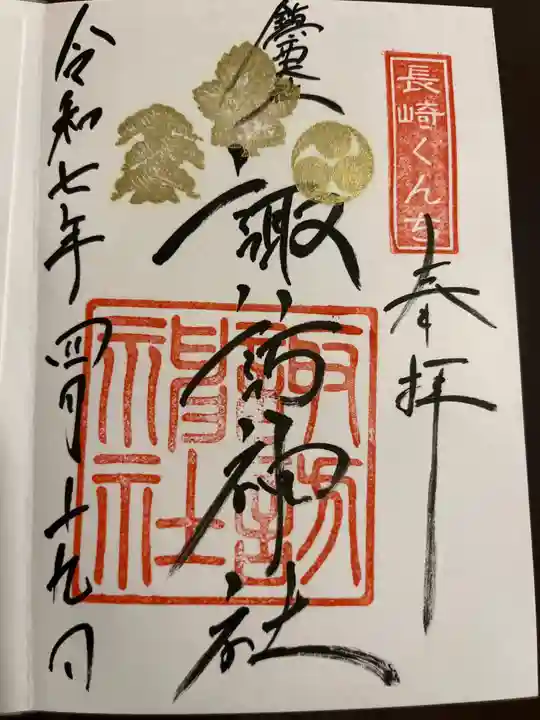 長崎くんち
奉拝
鎮西大社
諏訪神社
諏訪神社
令和七年四月十九日